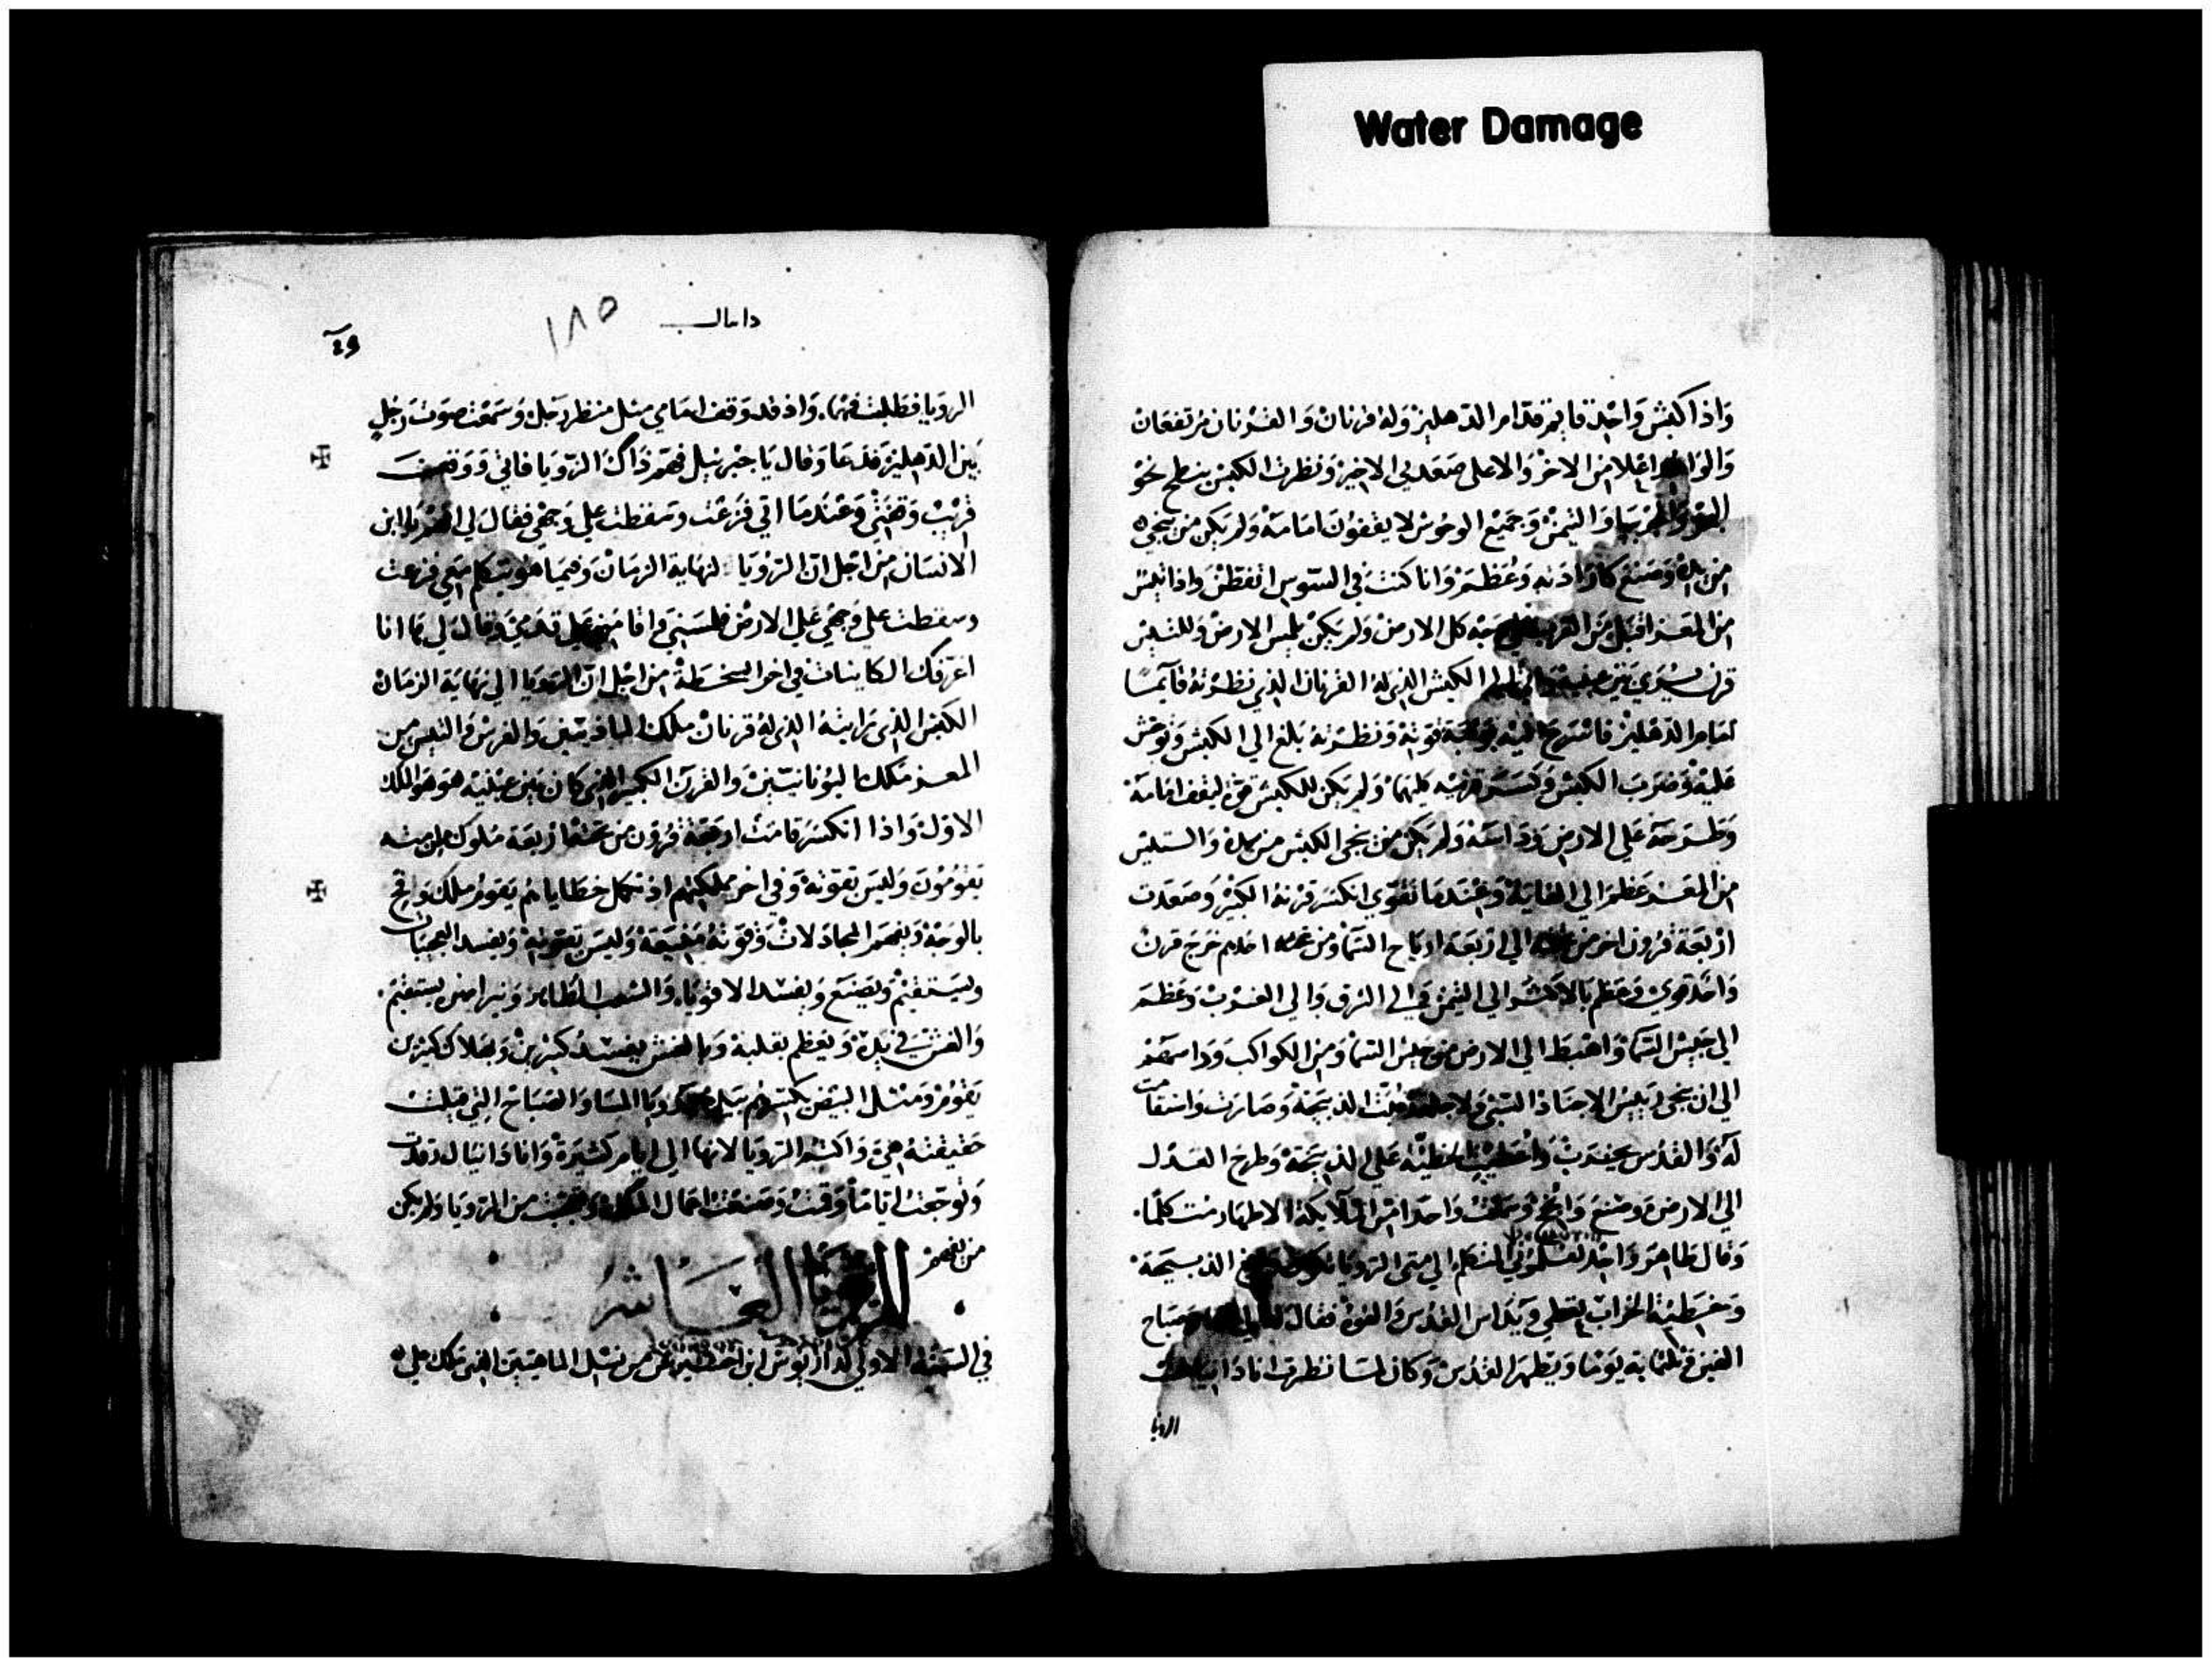 Water Damage
واذا كبش واحد قايم قدام الدهليز وله قرنان والقرنان مرتفعان
اعلا من الاخر والاعلى صعد في الاخير ونظرت الكبش ينطح نحو
واليمن وجميع الوحوش لا يقفون امامه ولم يكن من ينجي
من يده وصنع كارادته وعظم وانا كنت في السوس اتفطن واذا تيس
من المعز اقبل من وجه كل الارض ولم يكن يلمس الارض وللتيس
قرن يرى بين عينيه الكبش الذي له القرنان الذي نظرته قايمًا
امام الدهليز قوته ونظرته بلغ الى الكبش وتوحش
عليه وضرب الكبش وكسر قرنيه كليهما ولم يكن للكبش قوة ليقف امامه
وطرحه على الارض وداسه ولم يكن من ينجي الكبش من يده والتيس
من المعز عظم الى الغاية وعندما تقوى انكسر قرنه الكبير وصعدت
اربعة قرون اخر من الى اربعة ارياح السما ومن احدهم خرج قرن
واحد قوي وعظم بالاكثر الى اليمن والى الشرق والى الغرب وعظم
الى جيش السما واهبط الى الارض من جيش السما ومن الكواكب وداسهم
الى ان ينجي رييس الاجناد السبي الذبيحة وصارت واستقامت
له والقدس يخرب الخطية على الذبيحة وطرح العدل
الى الارض وصنع وانجح وسمعت واحدا من الملايكة الاطهار متكلما
وقال طاهر واحد المتكلم الى متى الرويا الذبيحة
وخطية الخراب ويداس القدس والقوة فقال صباح
الفين وثلثماية يوما ويطهر القدس وكان لما نظرت انا دانيال
الرويا
دانيال
١٨٥
الرويا فطلبت فهما واذ قد وقف امامي مثل منظر رجل وسمعت صوت رجل
بين الدهليز فدعا وقال يا جبرييل فهم ذاك الرويا فاتى ووقف
قريب وقفتي وعندما اتى فزعت وسقطت على وجهي فقال لي افهم يا ابن
الانسان من اجل ان الرويا لنهاية الزمان وفيما هو يتكلم معي فزعت
وسقطت على وجهي على الارض فلمسني واقامني على قدمي وقال لي ها انا
اعرفك الكاينات في اخر السخطة من اجل ان الرويا الى نهاية الزمان
الكبش الذي رايته الذي له قرنان ملك الماديين والفرس والتيس من
المعز ملك اليونانيين والقرن الكبير الذي كان بين عينيه هو هو الملك
الاول واذا انكسر قامت اربعة قرون من تحته اربعة ملوك من امته
يقومون وليس بقوته وفي اخر مملكتهم اذ تكمل خطاياهم يقوم ملك وقح
بالوجه ويفهم المجادلات وقوته وليس بقوته ويفسد العجيبات
ويستقيم ويصنع ويفسد الاقويا والشعب الطاهر ونير يستقيم
والغش في يده ويعظم بقلبه وبالغش يفسد كثيرين وبهلاك كثيرين
يقوم ومثل البيض يكسرهم بيده ورويا المسا والصباح التي قيلت
حقيقته هي واكتم الرويا لانها الى ايام كثيرة وانا دانيال رقدت
وتوجعت اياما وقمت وصنعت اعمال الملك وتعجبت من الرويا ولم يكن
من يفهم
الرويا العاشر
في السنة الاولى لداريوس ابن احشويرش من نسل الماديين الذي ملك على